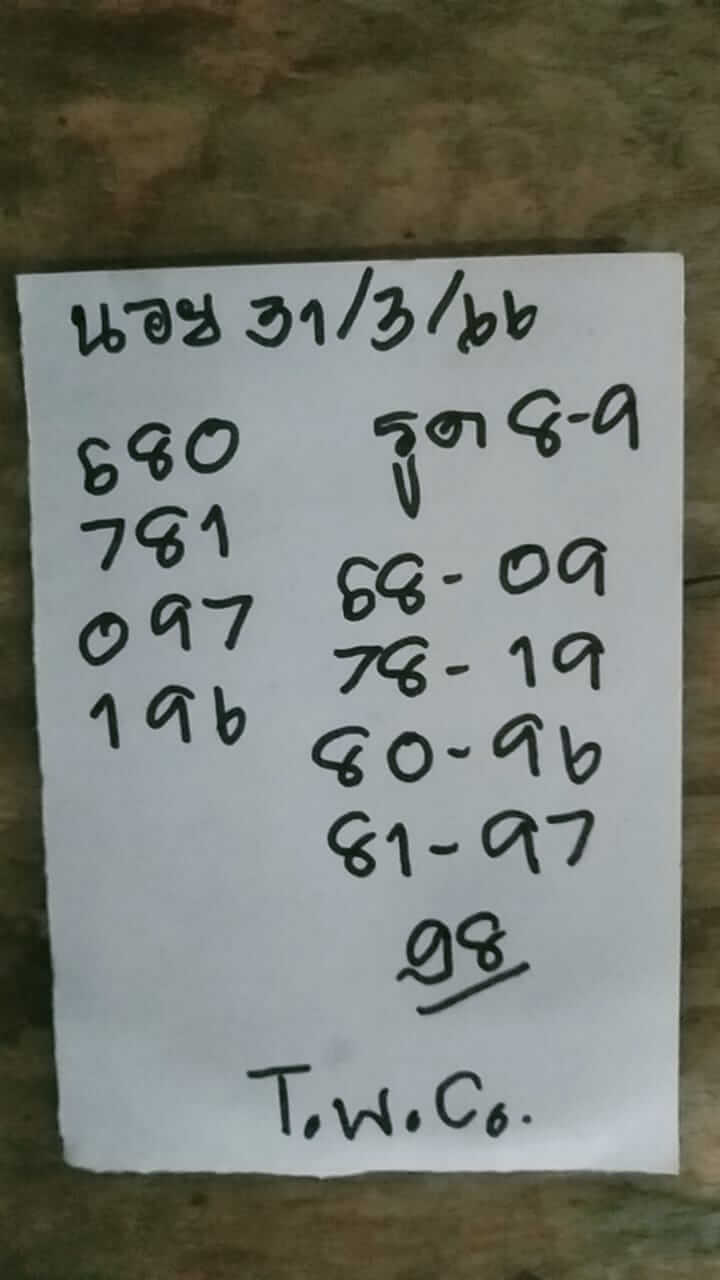 นอย 31/3/66
680
781
097
196
รูด 8-9
68- 09
78- 19
80-96
81-97
98
T.W.Co.